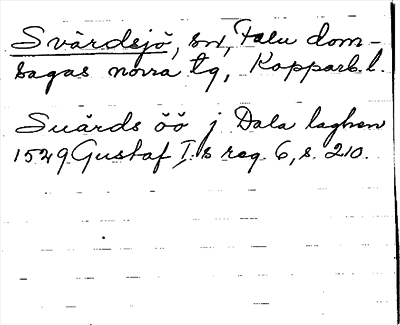 Svärdsjö, sn, Falu dom-
sagas norra tg, Kopparb. l.
Suärds öö j Dala laghen
1529 Gustaf I:s reg. 6, s. 210.